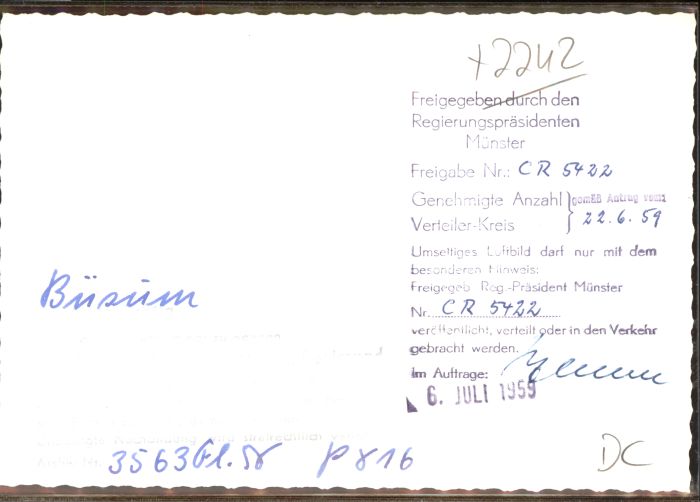 +2242
Freigegeben durch den
Regierungspräsidenten
Münster
Freigabe Nr.: CR 5422
Genehmigte Anzahl } gemEß Antrag vom:
Verteiler-Kreis } 22.6.59
Umseitiges Luftbild darf nur mit dem
besonderen Hinweis:
Freigegeb. Reg.-Präsident Münster
Nr. CR 5422
veröffentlicht, verteilt oder in den Verkehr
gebracht werden.
Im Auftrage:
6. JULI 1959
Büsum
3563
816
DC